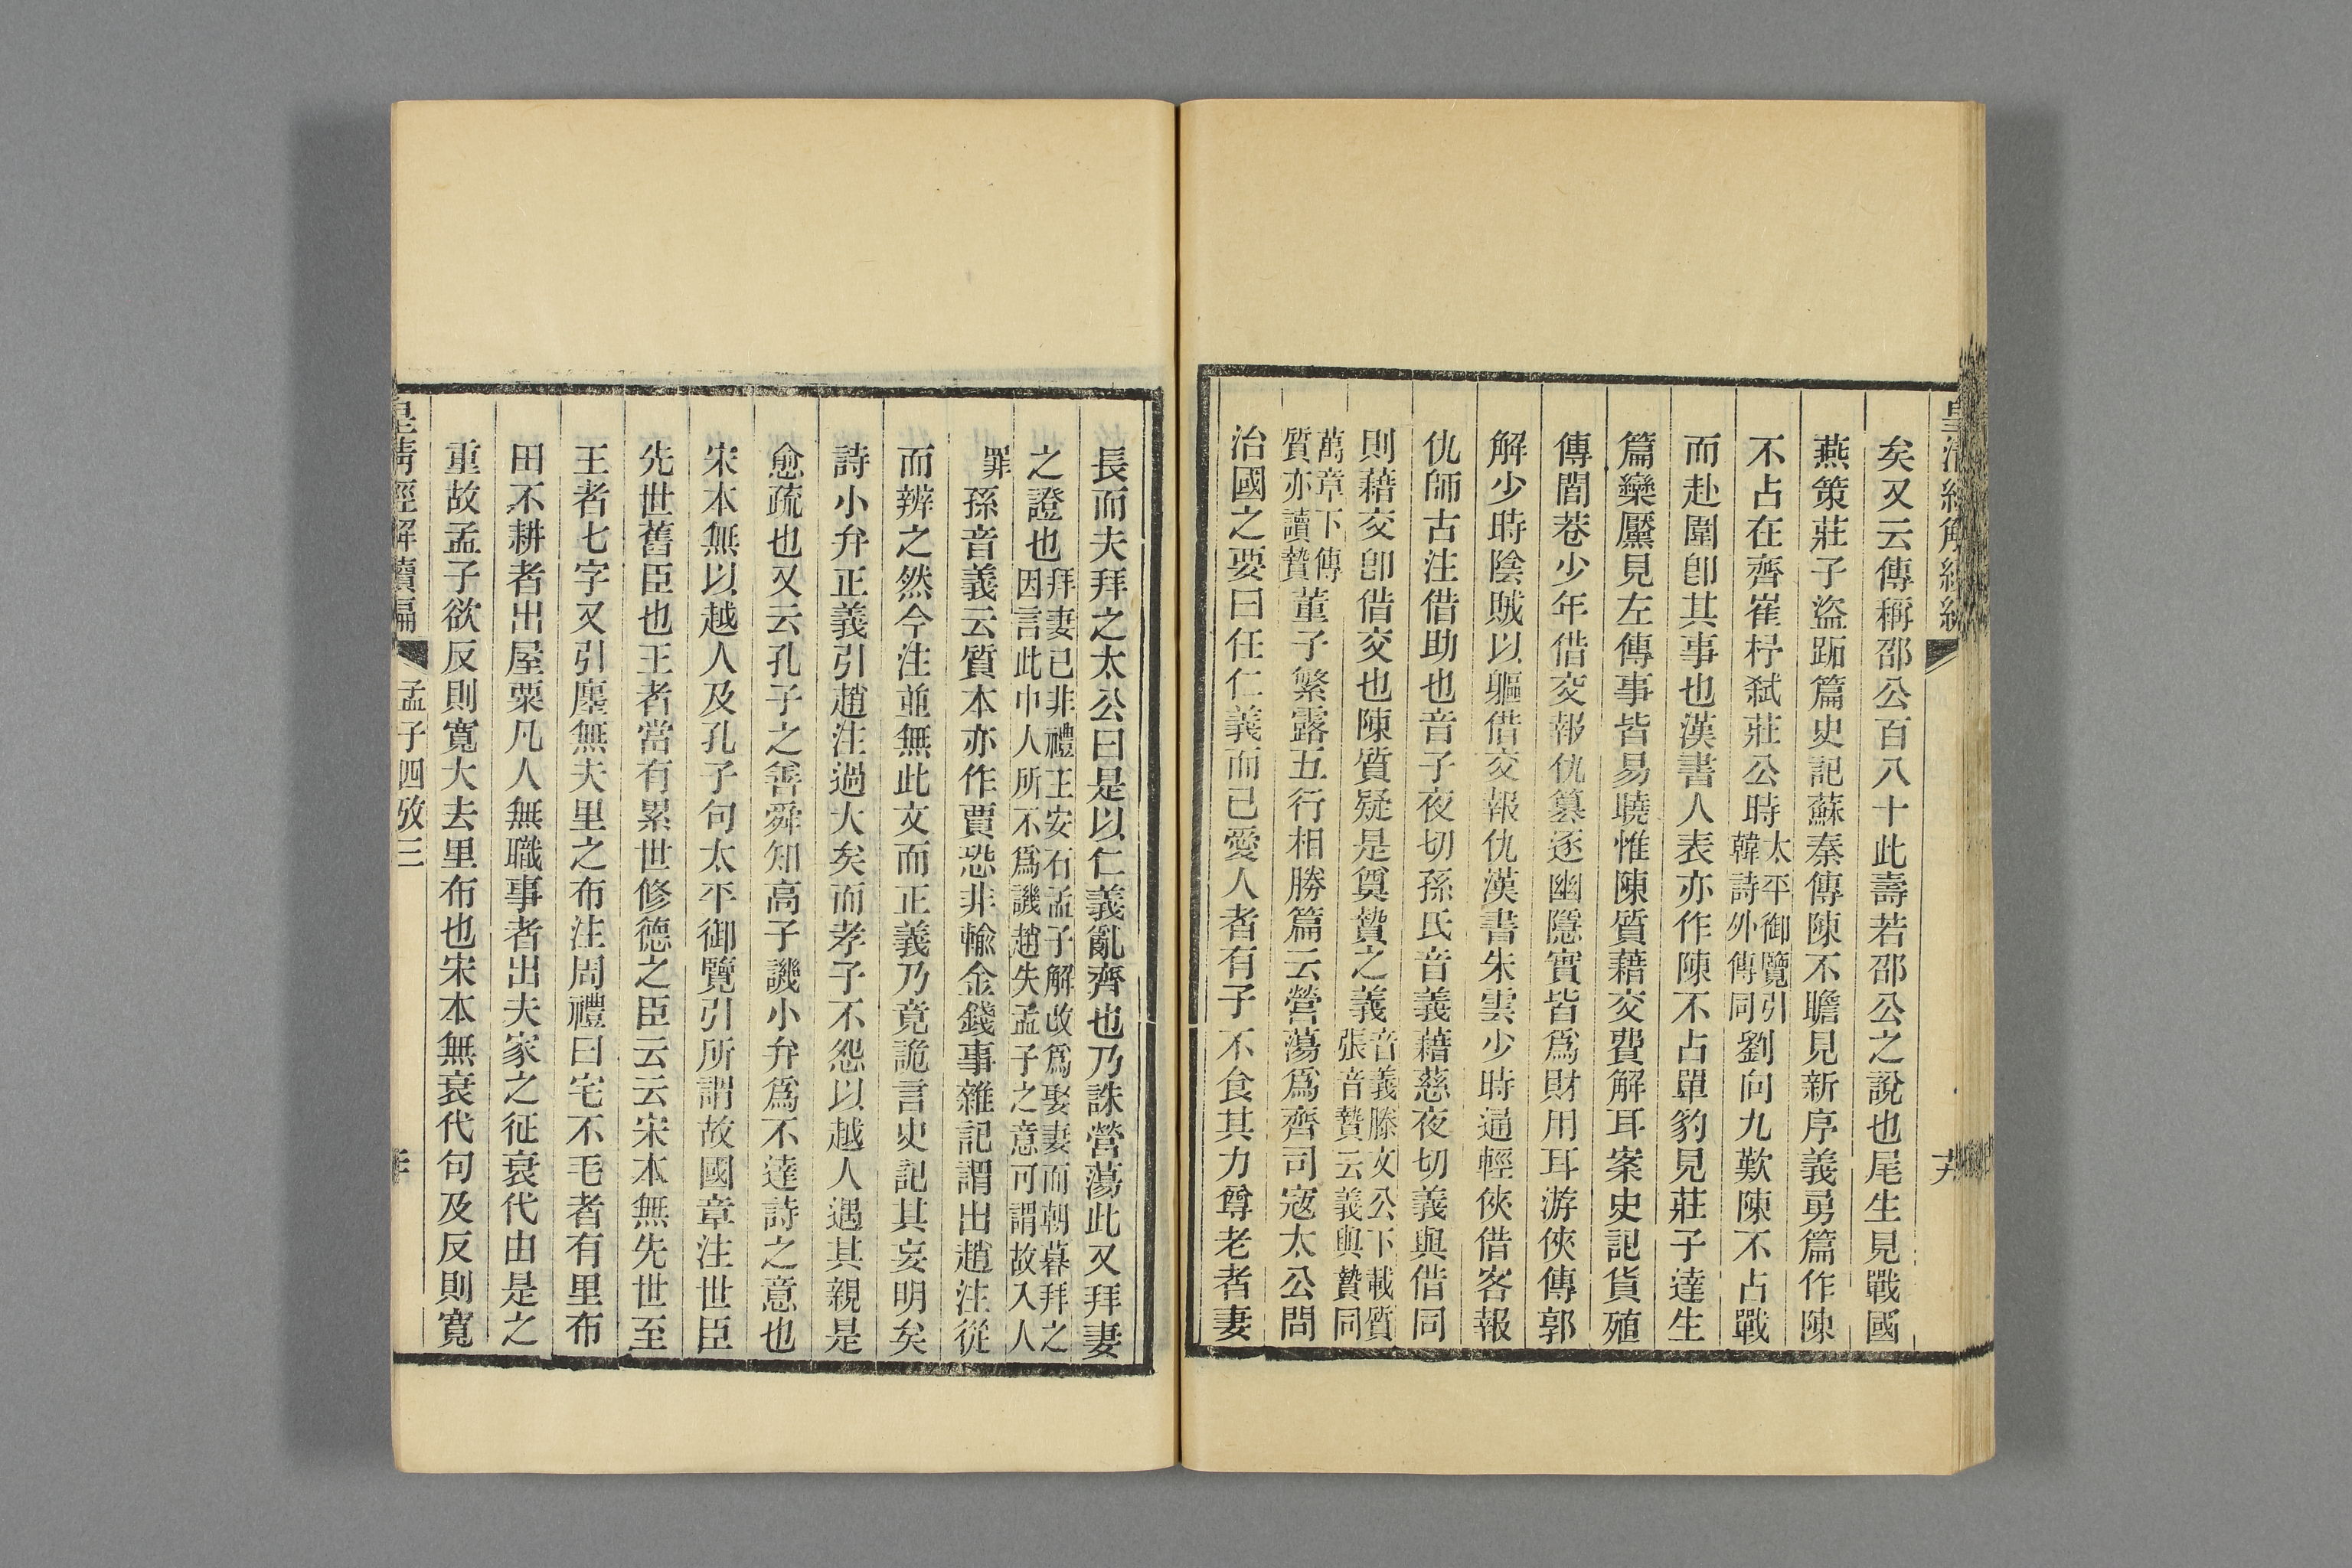 矣又云傳稱邵公百八十此壽若邵公之說也尾生見戰國
燕策莊子盜跖篇史記蘇秦傳陳不瞻見新序義勇篇作陳
不占在齊崔杼弑莊公時太平御覽引韓詩外傳同劉向九歎陳不占戰
而赴圍卽其事也漢書人表亦作陳不占單豹見莊子達生
篇欒黶見左傳事皆易曉惟陳質藉交費解耳案史記貨殖
傳閭巷少年借交報仇篡逐幽隱實皆爲財用耳游俠傳郭
解少時陰賊以軀借交報仇漢書朱雲少時通輕俠借客報
仇師古注借助也音子夜切孫氏音義藉慈夜切義與借同
則藉交卽借交也陳質疑是奠贄之義音義滕文公下載質張音贄云義與贄同
萬章下傳質亦讀贄董子繁露五行相勝篇云營蕩爲齊司寇太公問
治國之要曰任仁義而已愛人者有子不食其力尊老者妻
長而夫拜之太公曰是以仁義亂齊也乃誅營蕩此又拜妻
之證也拜妻已非禮王安石孟子解改爲娶妻而朝暮拜之因言此巾人所不爲譏趙失孟子之意可謂故入人
罪孫音義云質本亦作賈恐非輸金錢事雜記謂出趙注從
而辨之然今注並無此文而正義乃竟詭言史記其妄明矣
詩小弁正義引趙注過大矣而孝子不怨以越人遇其親是
愈疏也又云孔子之善舜知高子譏小弁爲不達詩之意也
宋本無以越人及孔子句太平御覽引所謂故國章注世臣
先世舊臣也王者當有累世修德之臣云云宋本無先世至
王者七字又引廛無夫里之布注周禮曰宅不毛者有里布
田不耕者出屋粟凡人無職事者出夫家之征衰代由是之
重故孟子欲反則寬大去里布也宋本無衰代句及反則寬
皇清經解續編 孟子四攷三